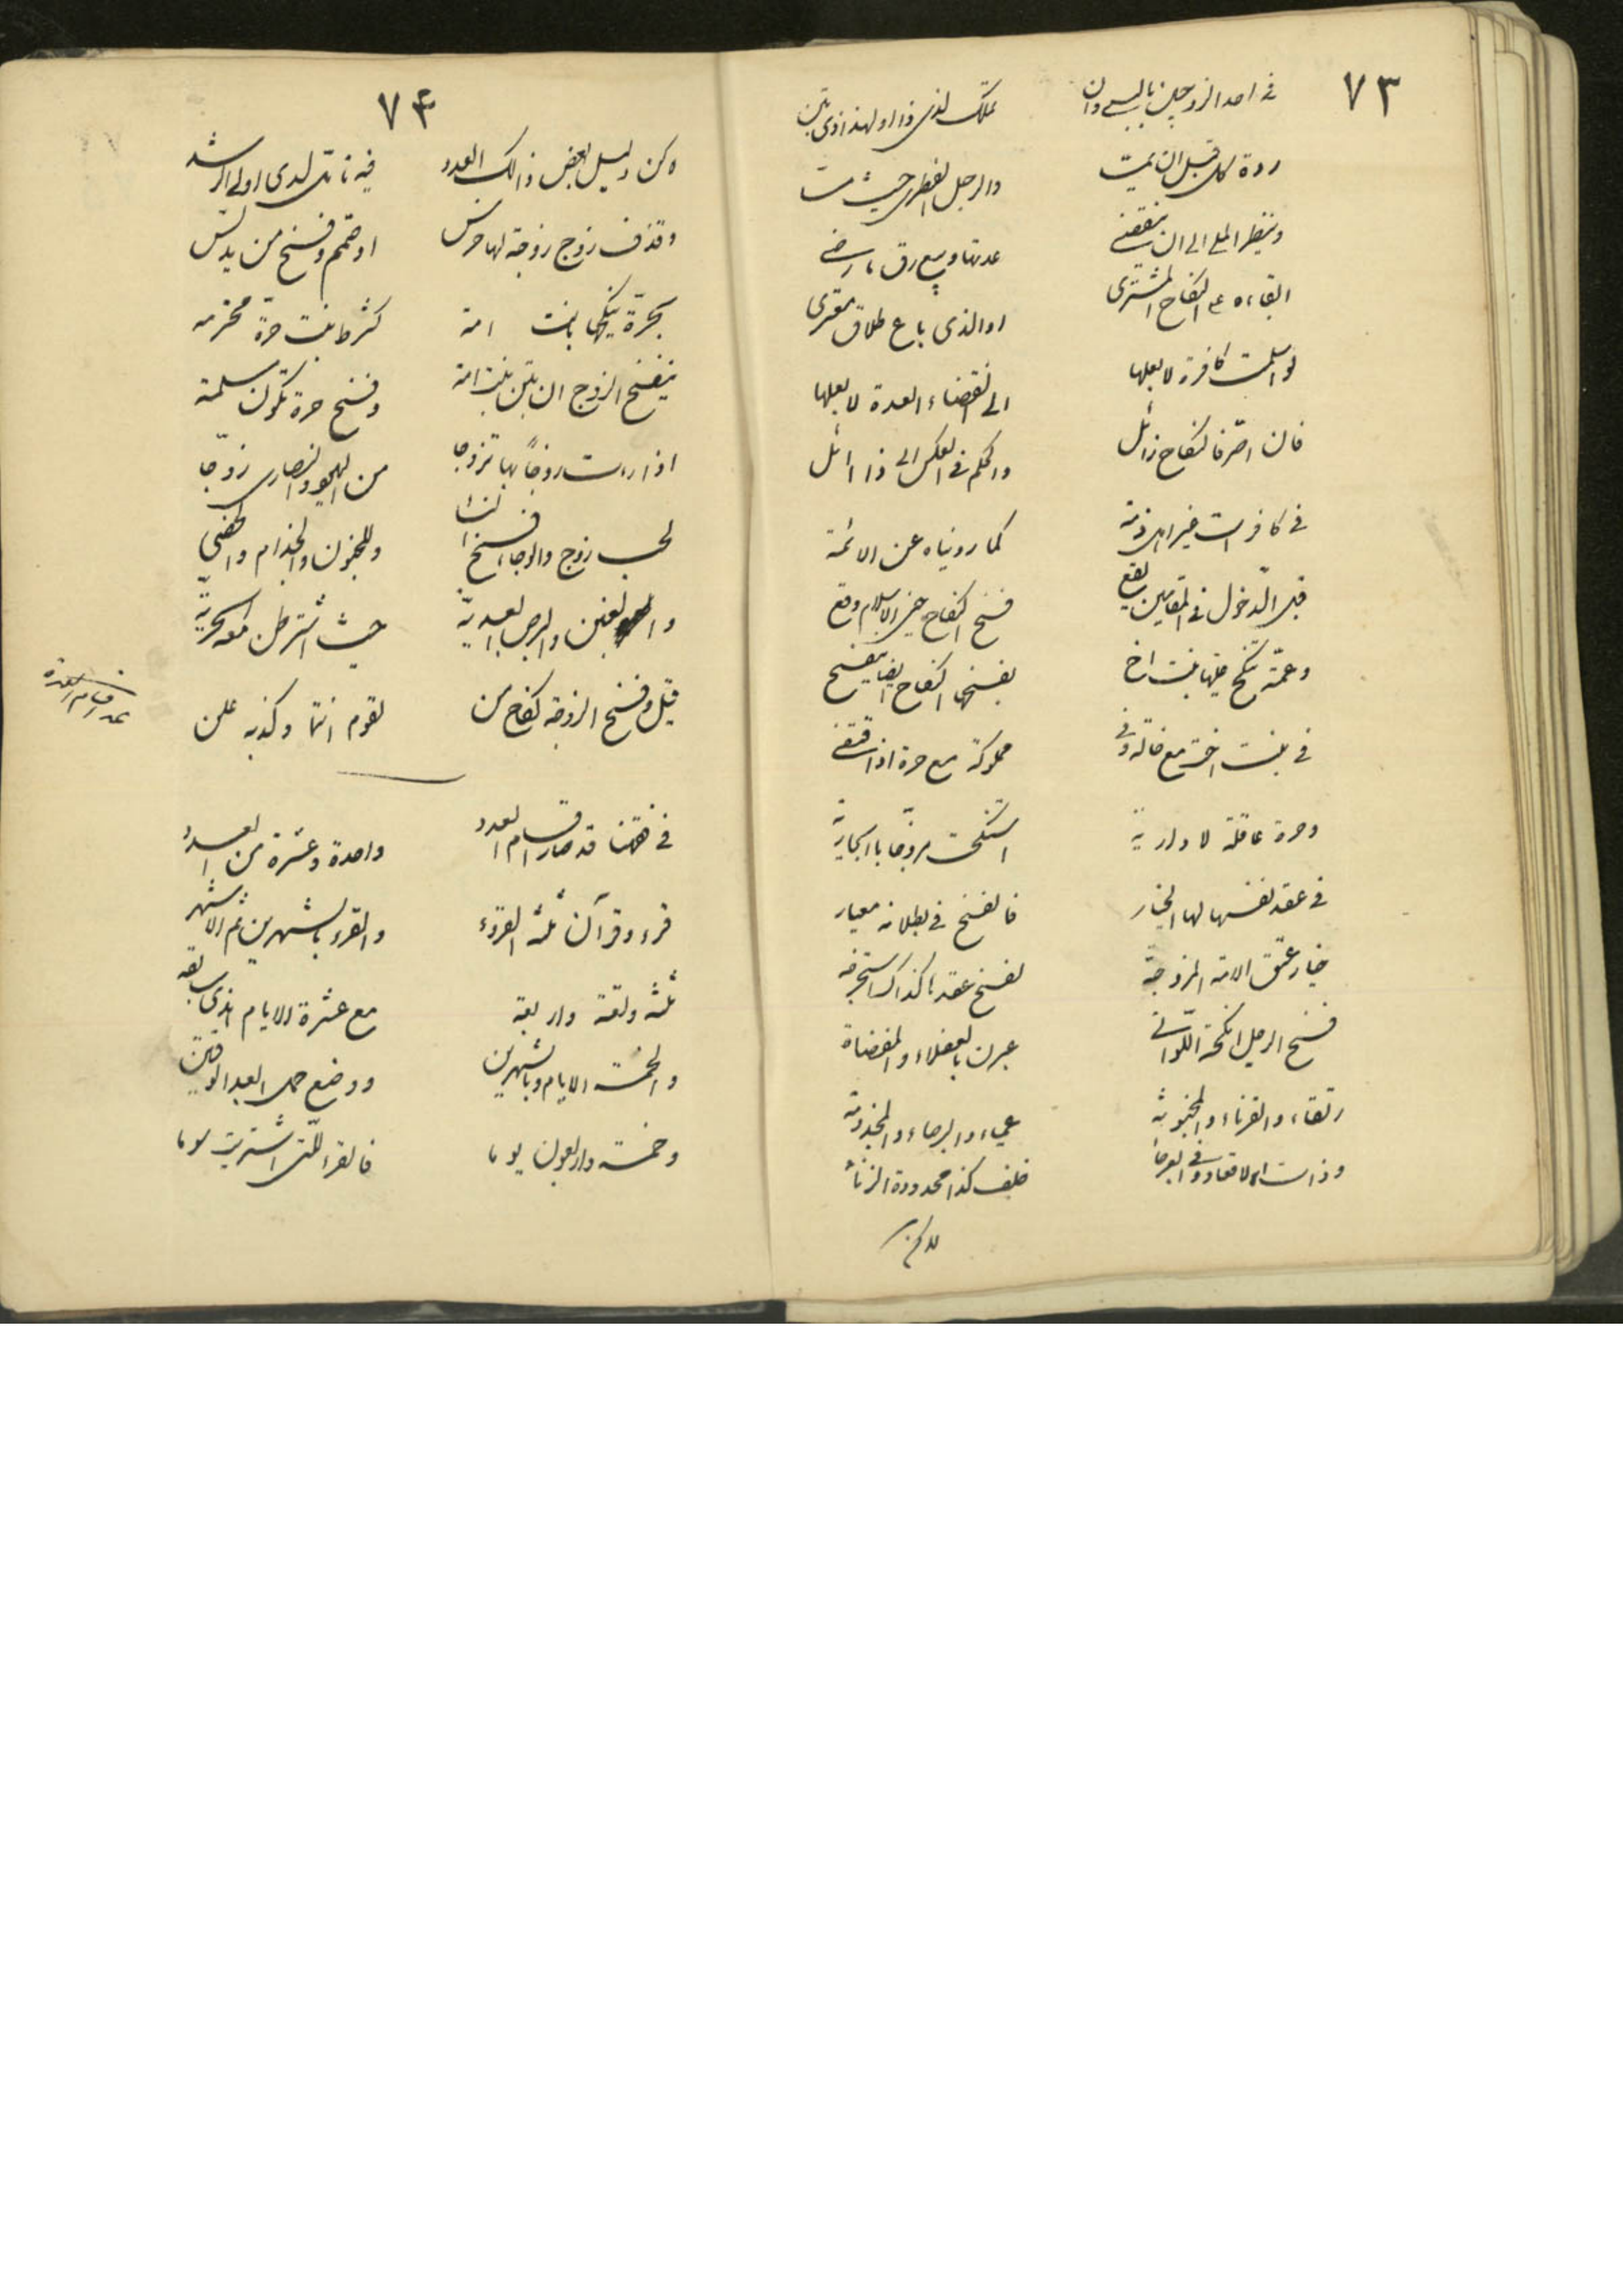 ٧٣
في احد الزوجين بالسبي وان تملك لذي ذا او لهذا ذي تبن
ردة كل قبل ان يمت والرجل الفطري حيث
وينظر الملي الى ان ينقضي عدتها وبيع رق ما رضي
ابقاءه النكاح المشترى او الذي باع طلاق معترى
لو اسلمت كافرة لا بعلها الى انقضاء العدة لا بعلها
فان اصر فالنكاح زائل والحكم في العكس الى ذا ائل
في كافرات غير اهل ذمة كما رويناه عن الائمة
قبل الدخول في المقامين يقع فسخ النكاح حين الاسلام وقع
وعمة تنكح عليها بنت اخ بفسخها النكاح ايضا ينفسخ
في بنت اخت مع خالة وفي مملوكة مع حرة اذا تقتفي
وحرة عاقلة لا دارية استنكحت مزوجا بالجارية
في عقد نفسها لها الخيار فالفسخ في بطلانه معيار
خيار عتق الامة المزوجة لفسخ عقد ها كذاك
فسخ الرجل انكحة اللواتي عبرن بالعفلاء والمفضاة
رتقاء والقرناء والمجنونة عمياء والبرصاء والمجذومة
وذات الاقعاد وفي العرجا خلف كذا محدودة الزناء
٧٤
كن دليل بعض ذالك العدد فيه تامل لدى اولي الرشد
وقذف زوج زوجة لها خرس او صمم وفسخ من يدلس
بحرة ينكحها بانت امة كشرط بنت حرة محترمه
ينفسخ الزوج ان تبن بنت امة وفسخ حرة تكون مسلمة
اذا رات زوجا بها تزوجا من اليهود والنصارى زوجا
لجب زوج والوجا الفسخ وللجنون والجذام والخصي
والعنن والبرص العبدية حيث اشترطن معه الحرية
قيل وفسخ الزوجة نكاح من لقوم انتما وكذبه علن
عدد اقسام العدة
في فقهنا قد صار اقسام العدد واحدة وعشرة من العدد
قرء وقرآن ثلثة القروء والقرء بالشهرين ثم الاشهر
ثلثة وتسعة واربعة مع عشرة الايام
والخمسة الايام وبالشهرين ووضع حمل ابعد الوقتين
وخمسة واربعون يوما فالقرء للتي اشتريت